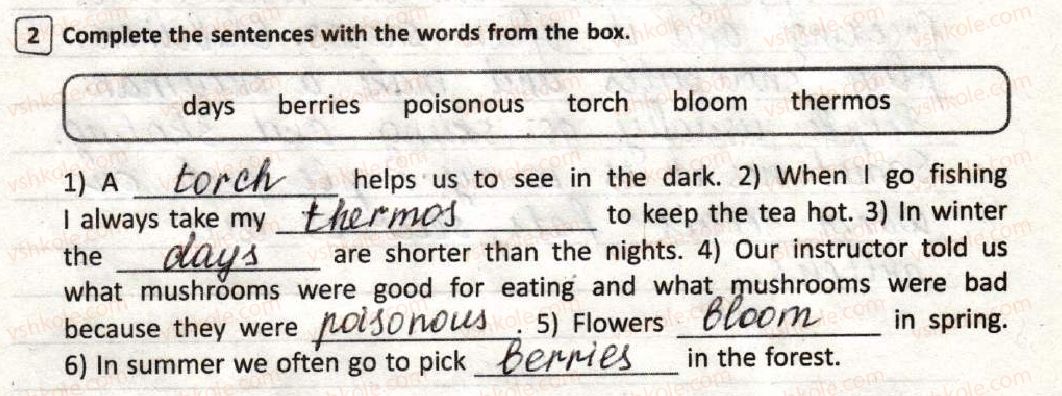 2 Complete the sentences with the words from the box.
days berries poisonous torch bloom thermos
1) A torch helps us to see in the dark. 2) When I go fishing
I always take my thermos to keep the tea hot. 3) In winter
the days are shorter than the nights. 4) Our instructor told us
what mushrooms were good for eating and what mushrooms were bad
because they were poisonous. 5) Flowers bloom in spring.
6) In summer we often go to pick berries in the forest.